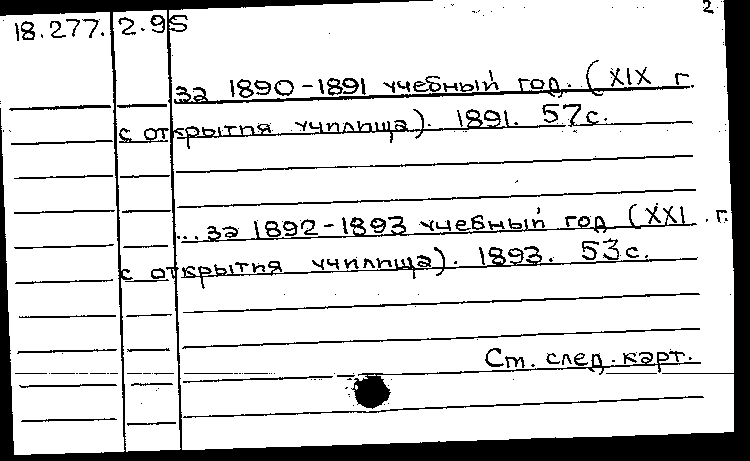 18.277.2.95 2
за 1890-1891 учебный год. (XIX г.
с открытия училища). 1891. 57с.
... за 1892-1893 учебный год (XXI г.
с открытия училища). 1893. 53с.
См. след. карт.